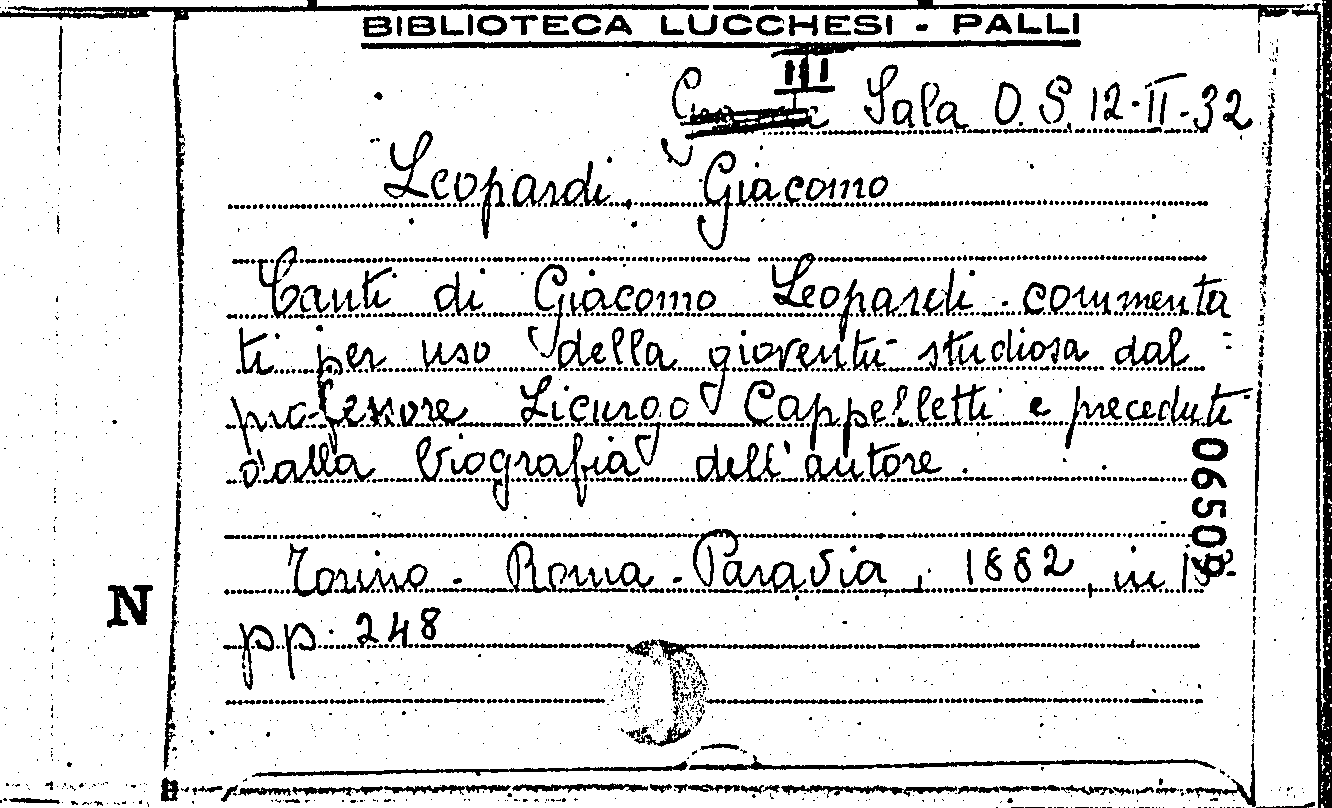 BIBLIOTECA LUCCHESI - PALLI
III Sala O.S. 12-II-32
Leopardi, Giacomo
Canti di Giacomo Leopardi commenta
ti per uso della gioventù studiosa dal
professore Licurgo Cappelletti e preceduti
dalla biografia dell'autore.
06509
Torino - Roma - Paravia, 1882, in
N
pp. 248